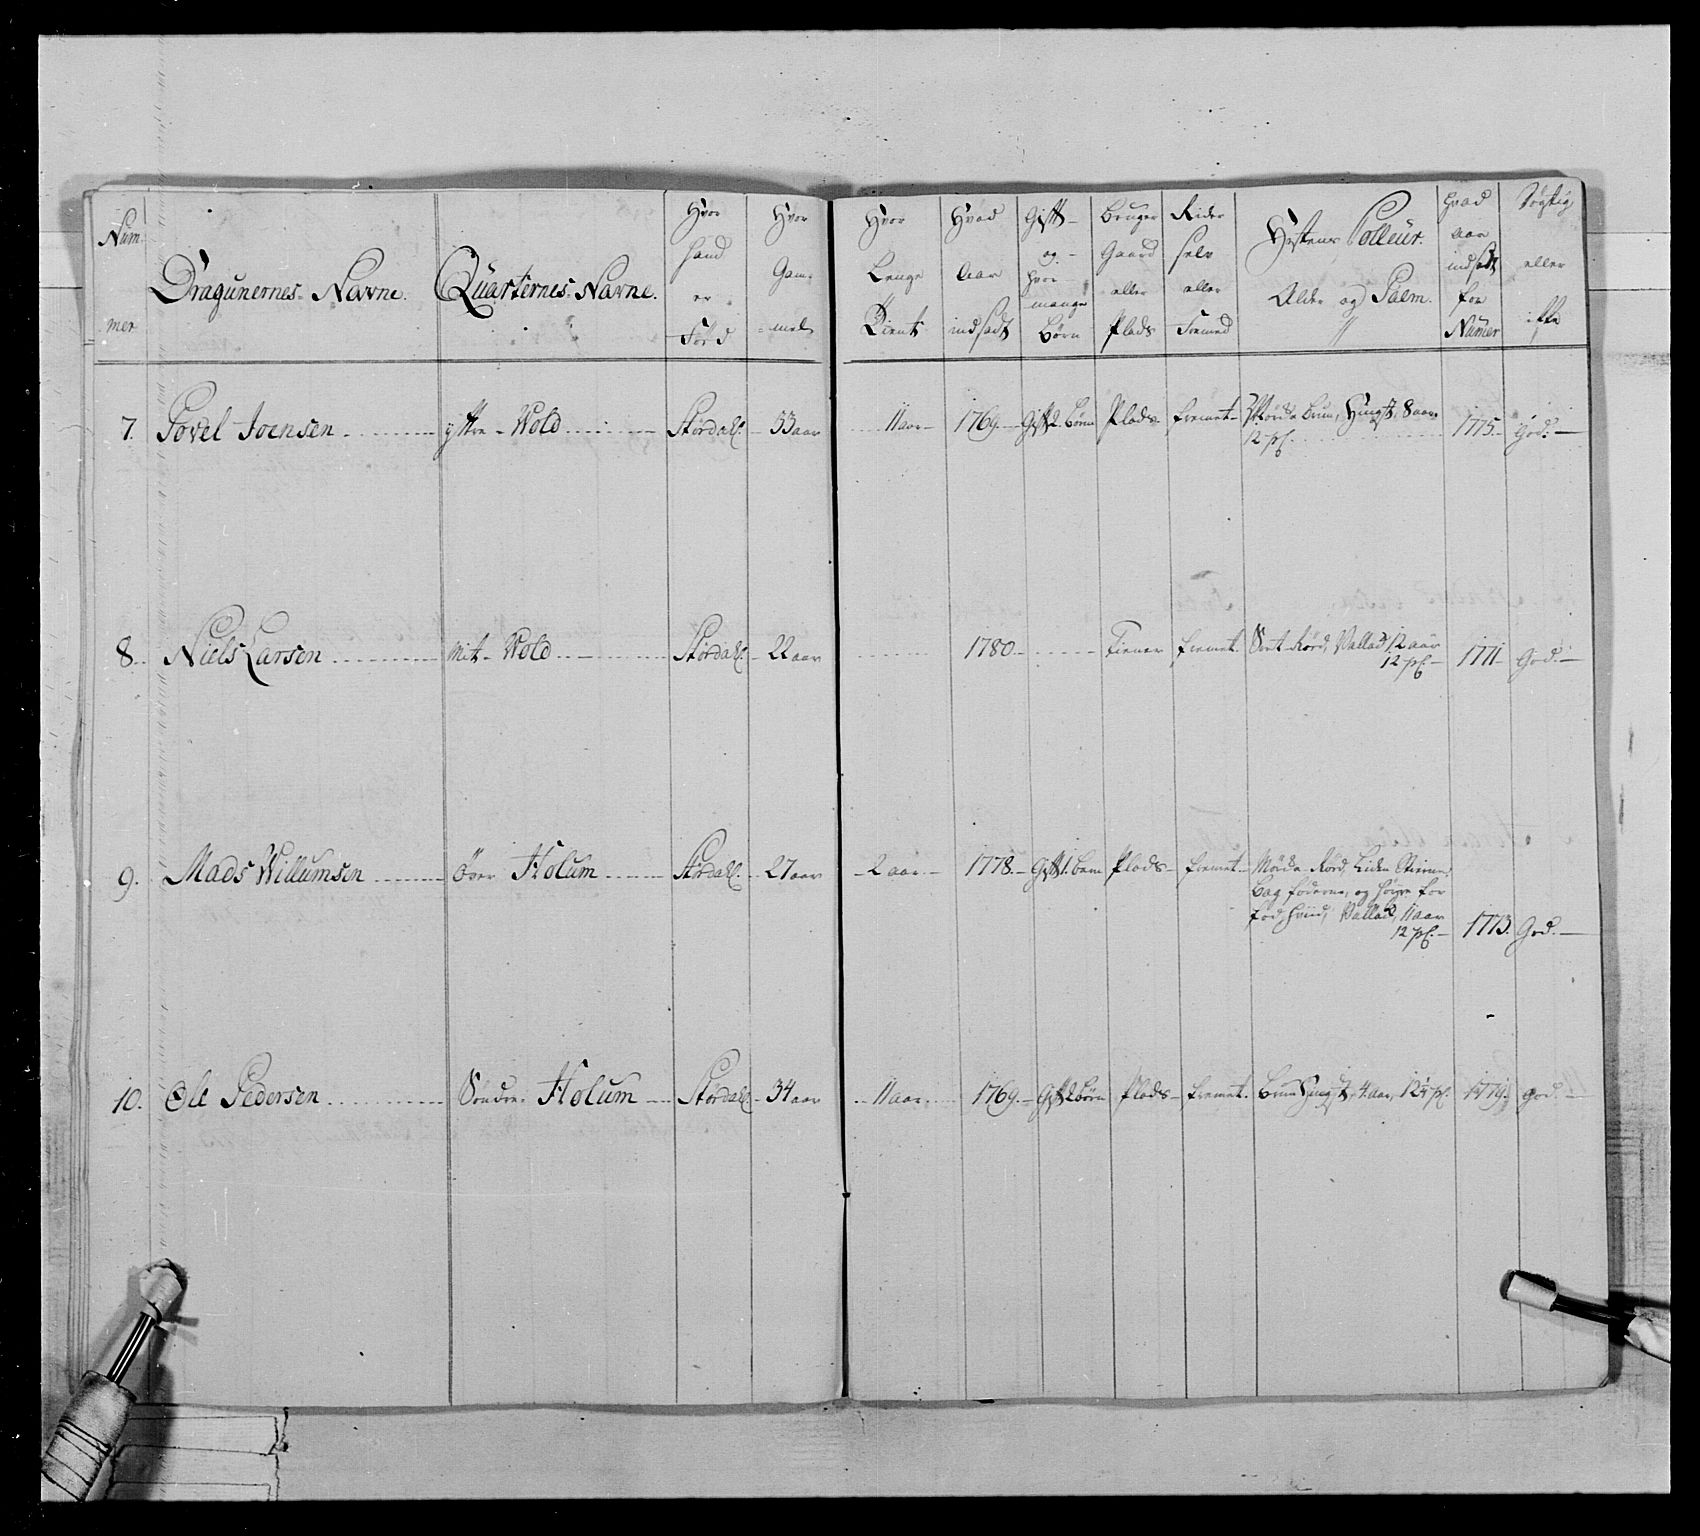 Num
mer
Dragunernes Navne.
Quarternes Navne.
Hvor
hand
er
Född
Hvor
Gam=
=mel
Hvor
Lenge
Tient
Hvad
Aar
indsadt
Gift
og
hvor
mange
Börn
Bruger
Gaard
eller
Plads
Rider
selv
eller
Fremed
Hestens Colleur.
Alder og Palm.
hvad
aar
indsadt
for
Numer
Dögtig
eller
ikke
7. Povel Joensen yttre Wold Stördahl. 33 aar 11 aar 1769. Gift 2 Börn Plads fremet Mörk Brun, Hingst, 8 aar
12 pl. 1775. God.
8. Niels Larsen Mit Wold Stördahl. 22 aar 1780 Tiener fremet. Sort Rörd, Vallad, 12 aar
12 pl. 1771 God.
9. Mads Willumsen Över Holum Stördahl. 27 aar 2 aar 1778. Gift 1. barn Plads fremet Mörk Rörd, Liden Stierne,
bag föderne, og höyre for
fod hviid, Vallad, 11 aar
12 pl. 1773. God.
10. Ole Pedersen Söndre Holum Stördahl 34 aar 11 aar 1769. Gift 2 börn Plads fremet. Brun Hingst, 4 aar, 12 1/2 pl. 1779. God.